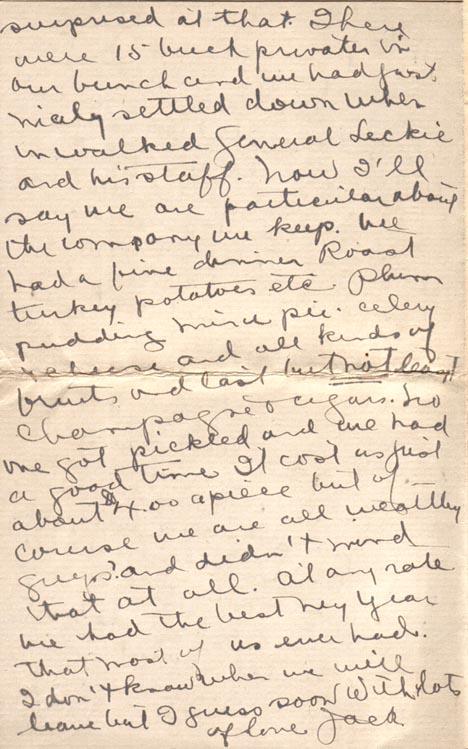 surprised at that. There
were 15 buck privates in
our bunch and we had just
nicely settled down when
in walked General Leckie
and his staff. Now I'll
say we are particular about
the company we keep. We
had a fine dinner Roast
turkey potatoes etc Plum
pudding mince pie. celery
cheese and all kinds of
fruits and last but not least
Champagne & cigars. No
one got pickled and we had
a good time It cost us just
about $4.00 apiece but of
course we are all wealthy
guys? and didn't mind
that at all. At any rate
we had the best Ney Year
that most of us ever had.
I don't know when we will
leave but I guess soon With lots
of love Jack